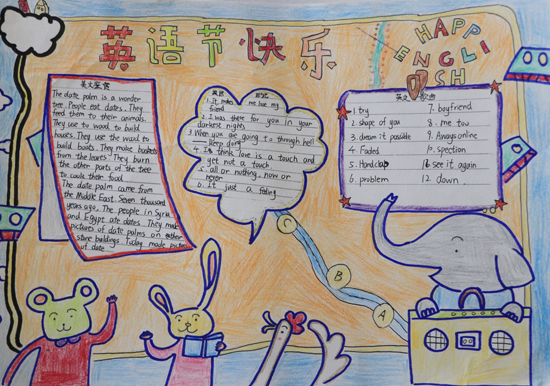 英语节快乐
HAPP
ENGLI
SH
英文鉴赏
The date palm is a wonder
tree. People eat dates. They
feed them to their animals.
They use to wood to build
houses. They use the wood to
build boats. They make baskets
from the leaves. They burn
the other parts of the tree
to cook their food.
The date palm came from
the Middle East. Seven thousand
years ago. The people in Syria
and Egypt ate dates. They made
pictures of date palms on
stone buildings. Today made
of date
英语
1. It makes me love my
friend
2. I was there for you in your
darkest nights
3. When you are going to through hell
keep doing
4. I think love is a touch and
yet not a touch
5. all or nothing, now or
never
6. It just a feling
英文歌曲
1. try
2. shape of you
3. dream it possible
4. Faded
5. Handclap
6. problem
7. boyfriend
8. me too
9. Always online
10. spection
11. see it again
12 down
C
B
A